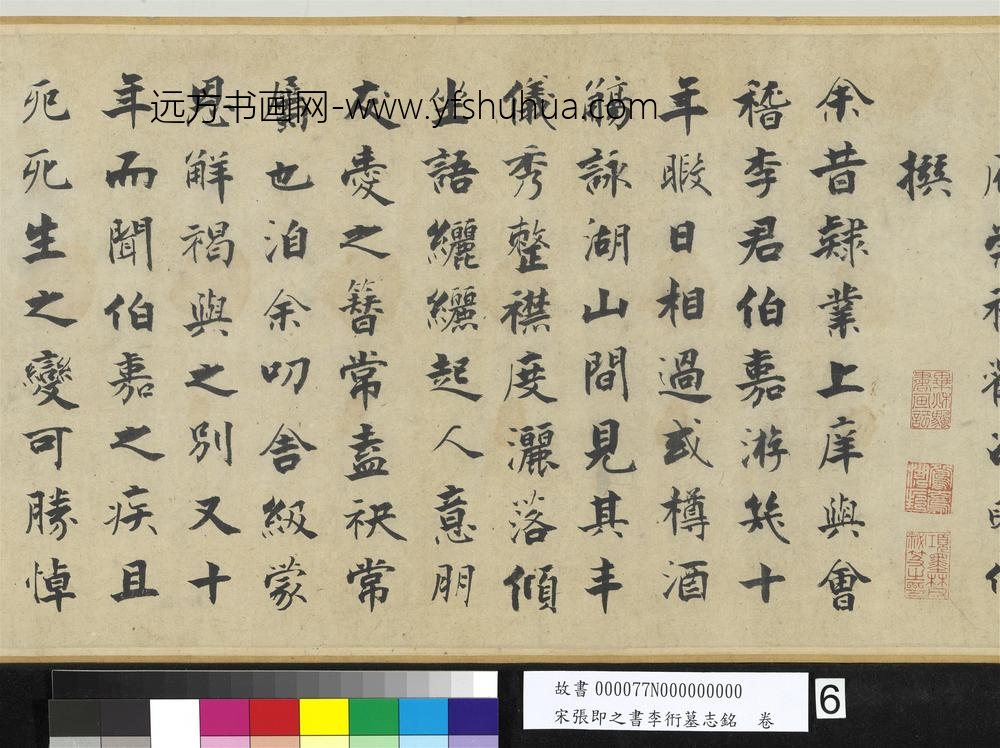 撰
余昔隸業上庠與會
稽李君伯嘉游幾十
年暇日相過或樽酒
觴詠湖山間見其丰
儀秀整襟度灑落傾
坐語纚纚起人意朋
友愛之簪常盍袂常
也洎余叨舍級蒙
恩解褐與之別又十
年而聞伯嘉之疾且
死死生之變可勝悼
远方书画网-www.yfshuhua.com
故書 000077N000000000
宋張即之書李衎墓志銘 卷
6